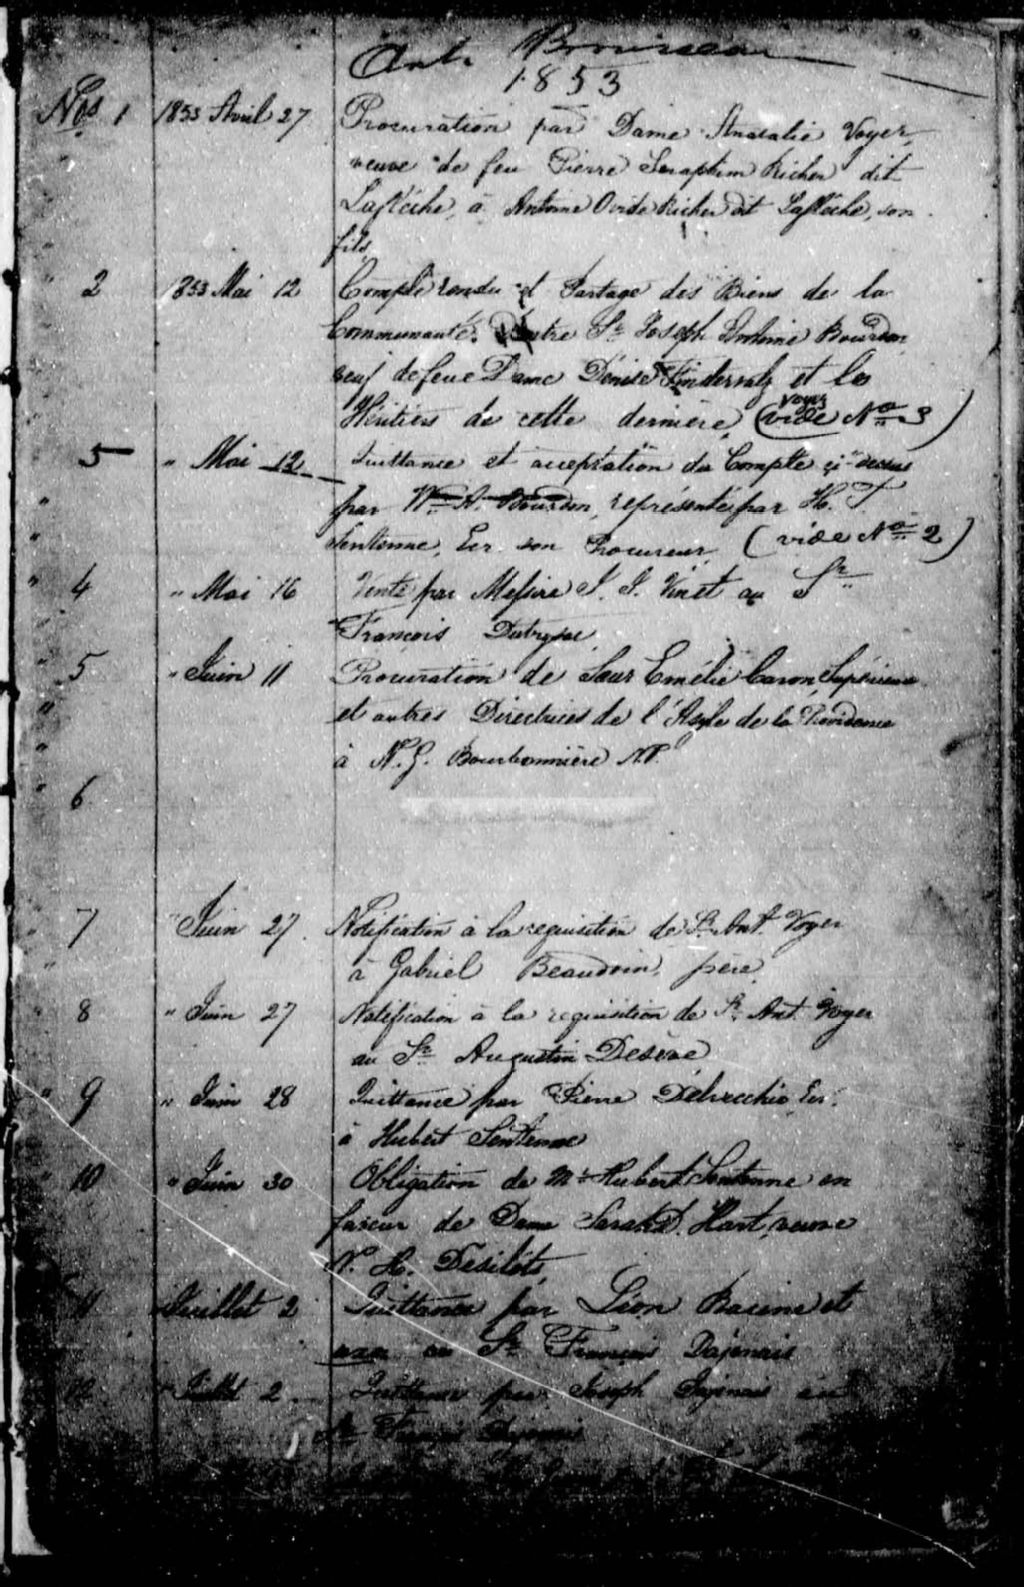 Ant. Brousseau
1853
Nos 1 1853 Avril 27 Procuration par Dame Anatalie Voyer,
veuve de feu Pierre Seraphim Richer dit
Laflêche, à Antoine Ovide Richer dit Laflêche, son
fils,
2 1853 Mai 12 Compte rendu et Partage des Biens de la
Communauté d'entre Sr Joseph Antoine Bourdon
veuf de feue Dame Denise et les
Héritiers de cette dernière, (voyez vide No 3)
3 " Mai 12 Quittance et acceptation du Compte ci-dessus
par Wm A. Bourdon, représenté par H. T.
Sentenne, Ecr. son Procureur (vide No 2)
" 4 " Mai 16 Vente par Messire J. J. Vinet au Sr
François
" 5 " Juin 11 Procuration de Sœur Emélie Caron, Supérieure
et autres Directrices de l'Asyle de la Providence
à N. G. Bourbonnière N.P.
" 6
" 7 " Juin 27 Notification à la requisition de Sr Ant. Voyer
à Gabriel Beaudoin, père,
" 8 " Juin 27 Notification à la requisition de Sr Ant. Voyer
au Sr Augustin Desève
" 9 " Juin 28 Quittance par Pierre Delvecchio, Ecr.
à Hubert Sentenne
" 10 " Juin 30 Obligation de Mr Hubert Sentenne en
faveur de Dame Sarah D. Hart, veuve
N. H. Désilets,
11 Juillet 2 Quittance par Léon Racine et
uxor au Sr François Dajenais
12 " Juillet 2 Quittance par Joseph Dajenais au
Sr François Dajenais